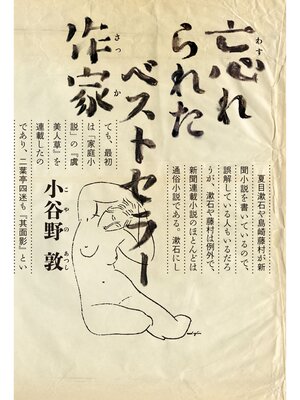 わす
忘れ
られた
ベストセラー
さっか
作家
夏目漱石や島崎藤村が新
聞小説を書いているので、
誤解している人もいるだろ
うが、漱石や藤村は例外で、
新聞連載小説のほとんどは
通俗小説である。漱石にし
ても、最初
は「家庭小
説」の『虞
美人草』を
連載したの
であり、二葉亭四迷も『其面影』とい
こやの あつし
小谷野 敦